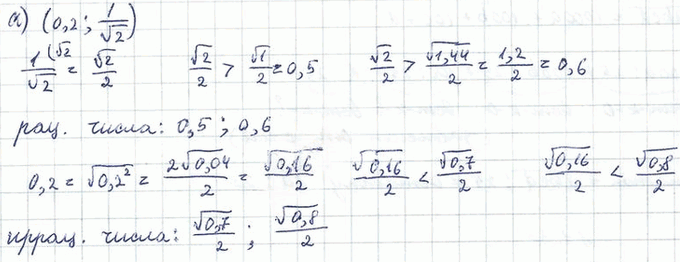 а) (0,2; 1/√2)
1(√2/√2 = √2/2   √2/2 > √1/2 = 0,5   √2/2 > √1,44/2 = 1,2/2 = 0,6
рац. числа: 0,5; 0,6
0,2 = √0,2² = 2√0,04/2 = √0,16/2   √0,16/2 < √0,7/2   √0,16/2 < √0,8/2
иррац. числа: √0,7/2; √0,8/2